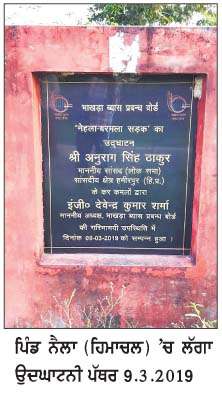 भाखड़ा ब्यास प्रबन्ध बोर्ड
'नेहला-बरमला सड़क' का
उद्घाटन
श्री अनुराग सिंह ठाकुर
माननीय सांसद (लोक सभा)
सांसदीय क्षेत्र हमीरपुर (हि.प्र.)
के कर कमलों द्वारा
इंजी० देवेन्द्र कुमार शर्मा
माननीय अध्यक्ष, भाखड़ा ब्यास प्रबन्ध बोर्ड
की गरिमामयी उपस्थिति में
दिनांक 09-03-2019 को सम्पन्न हुआ ।
ਪਿੰਡ ਨੈਲਾ (ਹਿਮਾਚਲ) 'ਚ ਲੱਗਾ
ਉਦਘਾਟਨੀ ਪੱਥਰ 9.3.2019